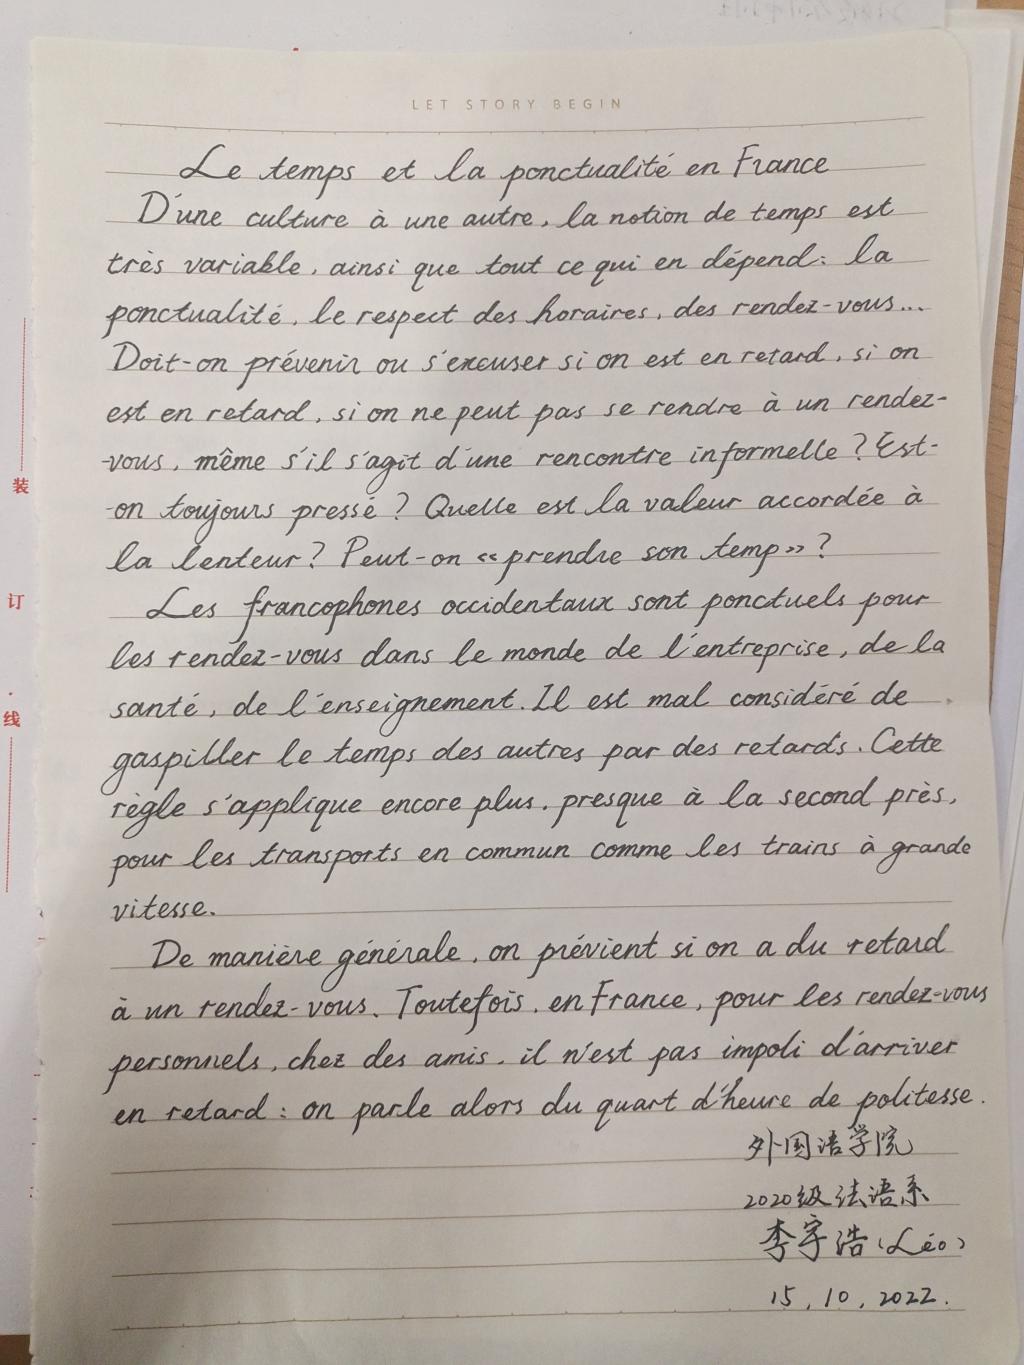 LET STORY BEGIN
Le temps et la ponctualité en France
D'une culture à une autre, la notion de temps est
très variable, ainsi que tout ce qui en dépend: la
ponctualité, le respect des horaires, des rendez-vous...
Doit-on prévenir ou s'excuser si on est en retard, si on
est en retard, si on ne peut pas se rendre à un rendez-
-vous, même s'il s'agit d'une rencontre informelle? Est-
-on toujours pressé? Quelle est la valeur accordée à
la lenteur? Peut-on «prendre son temp»?
Les francophones occidentaux sont ponctuels pour
les rendez-vous dans le monde de l'entreprise, de la
santé, de l'enseignement. Il est mal considéré de
gaspiller le temps des autres par des retards. Cette
règle s'applique encore plus, presque à la second près,
pour les transports en commun comme les trains à grande
vitesse.
De manière générale, on prévient si on a du retard
à un rendez-vous. Toutefois, en France, pour les rendez-vous
personnels, chez des amis, il n'est pas impoli d'arriver
en retard: on parle alors du quart d'heure de politesse.
外国语学院
2020级法语系
李宇浩 (Léo)
15, 10, 2022.
装
订
线